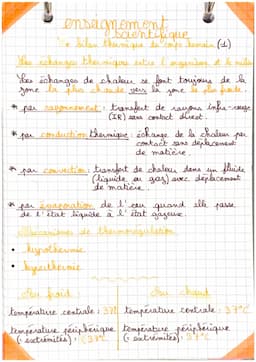 enseignement
scientifique
• bilan thermique du corps humain (1)
Les échanges thermiques entre l'organisme et le milieu
Les échanges de chaleur se font toujours de la
zone la plus chaude vers la zone la plus froide.
* par rayonnement : transfert de rayons infra-rouge
(IR) sans contact direct.
* par conduction thermique : échange de la chaleur par
contact sans déplacement
de matière.
* par convection : transfert de chaleur dans un fluide
(liquide ou gaz) avec déplacement
de matière.
* par évaporation de l'eau quand elle passe
de l'état liquide à l'état gazeux.
Mécanismes de thermorégulation
• hypothermie
• hyperthermie
Au froid
Au chaud
température centrale : 37°
température centrale : 37°C
température périphérique
température périphérique
(: extrémités) : <37°C
(: extrémités) : 37°C